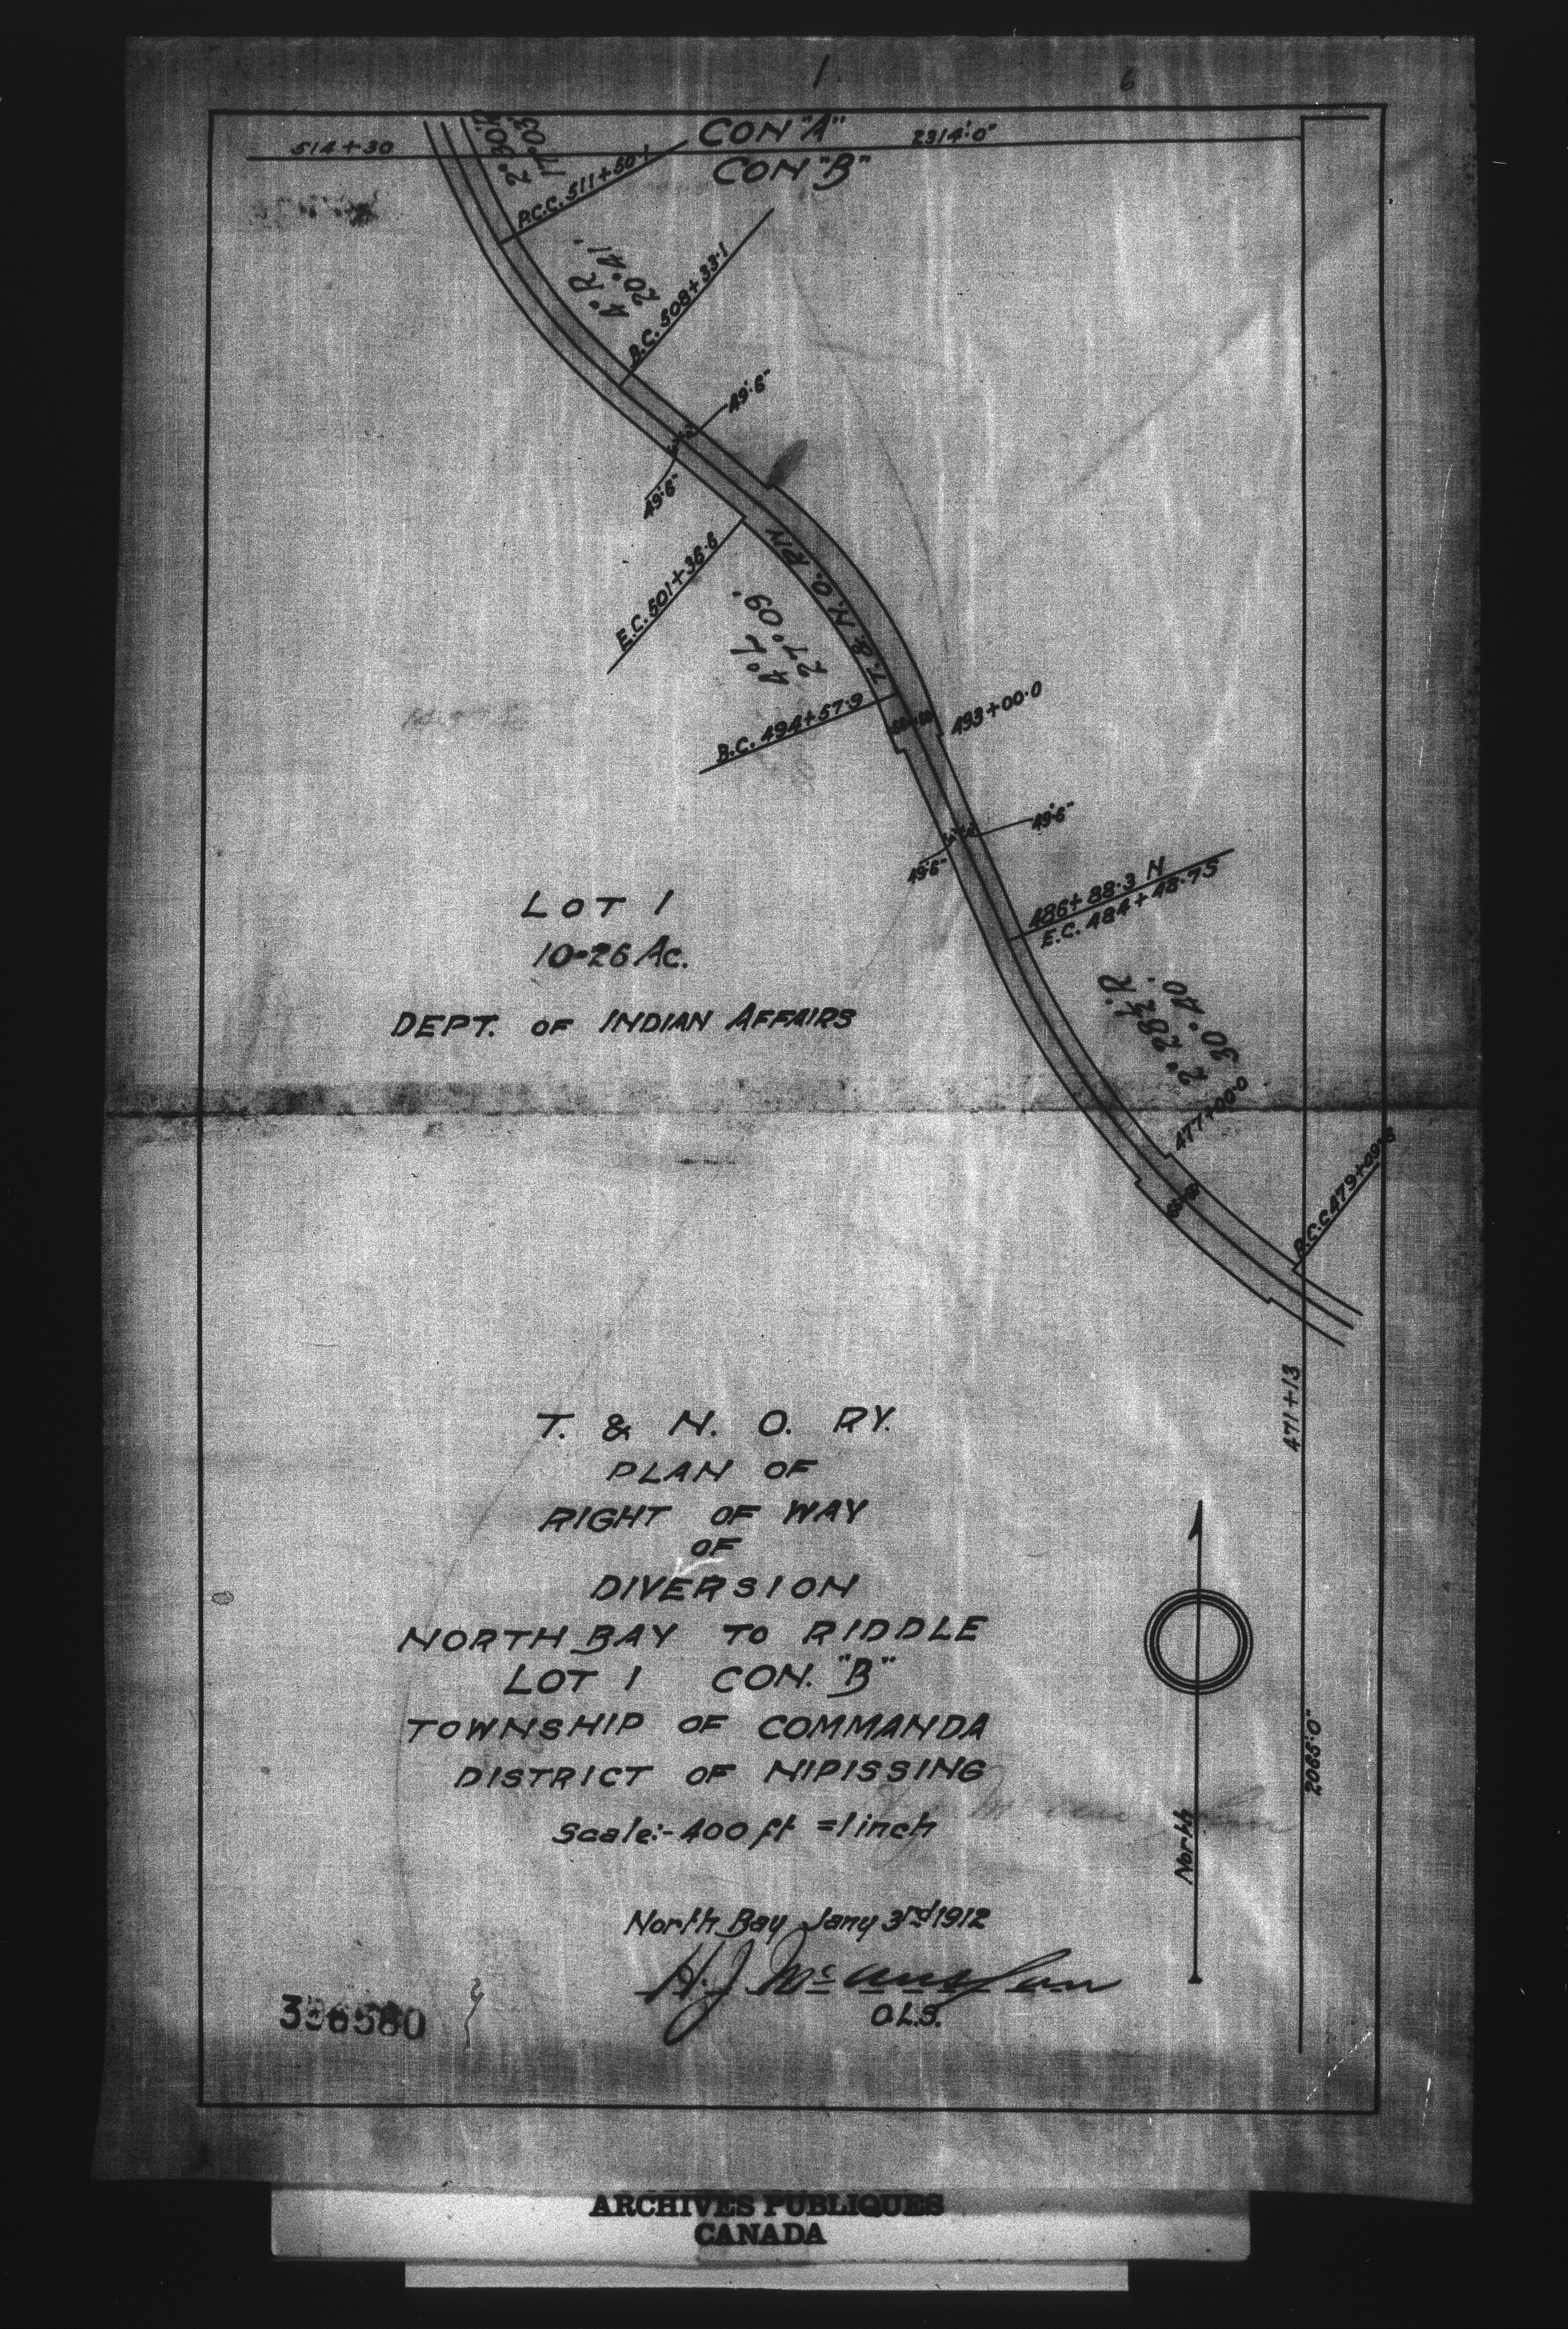 1
6
514+30
CON "A"
2314'.0"
CON "B"
P.C.C. 511+60.1
4° R
20° 41'
B.C. 508+33.1
49'.6"
49'.6"
E.C. 501+36.6
T. & N. O. RY
4° L
27° 09'
B.C. 494+57.9
493+00.0
49'.6"
49'.6"
486+88.3 N
E.C. 484+48.7S
LOT 1
10.26 Ac.
DEPT. OF INDIAN AFFAIRS
R.
30° 40'
477+00.0
471+13
T. & N. O. RY.
PLAN OF
RIGHT OF WAY
OF
DIVERSION
NORTH BAY TO RIDDLE
LOT 1 CON. "B"
TOWNSHIP OF COMMANDA
DISTRICT OF NIPISSING
Scale:- 400 ft = 1 inch
North
2065'.0"
North Bay Jany 3rd 1912
O.L.S.
ARCHIVES PUBLIQUES
CANADA